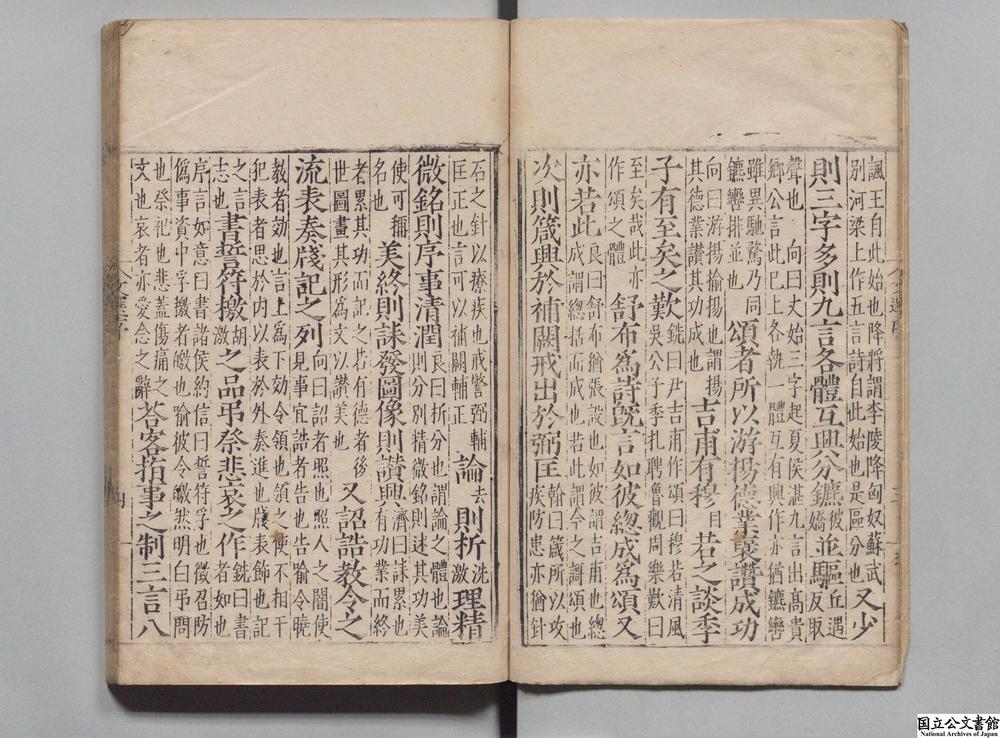 諷王自此始也降將謂李陵降匈奴蘇武
別河梁上作五言詩自此始也是區分也
又少
則三字多則九言各體互興分鑣彼嬌並驅丘遇反取
聲也 向曰文始三字起夏侯湛九言出高貴
鄉公言此已上各執一體互有興作亦猶鑣轡
雖異馳騖乃同
鑣轡排並也
頌者所以游揚德業褒讚成功
向曰游揚揄揚也謂揚
其德業讚其功成也
吉甫有穆目若之談季
子有至矣之歎
銑曰尹吉甫作頌曰穆若清風
吳公子季札聘魯觀周樂歎曰
至矣哉此亦
作頌之體
舒布為詩既言如彼總成為頌又
亦若此
良曰舒布猶張設也如彼謂吉甫也總
成謂總括而成也若此謂今之謌頌也
次則箴興於補闕戒出於弼匡
翰曰箴所以攻
疾防患亦猶針
石之針以療疾也戒警弼輔
匡正也言可以補闕輔正
論去則析洗激理精
微銘則序事清潤
良曰析分也謂論之體也論
則分別精微銘則述其功美
使可稱
名也
美終則誄發圖像則讚興
濟曰誄累也
有功業而終
者累其功而記之若有德者後
世圖畫其形為文以讚美也
又詔誥教令之
流表奏牋記之列
向曰詔者照也照人之闇使
見事宜誥者告也告喻令曉
教者効也言上為下効令領也領之使不相干
犯表者思於内以表於外奏進也牋表飾也記
之言
志也
書誓符檄胡激之品弔祭悲哀之作
銑曰書
者如也
序言如意曰書諸侯約信曰誓符孚也徵召防
偽事資中孚檄者皦也喻彼令皦然明白弔問
也祭祀也悲蓋傷痛之
文也哀者亦愛念之辭
荅客指事之制三言八
文選序
四
国立公文書館
National Archives of Japan